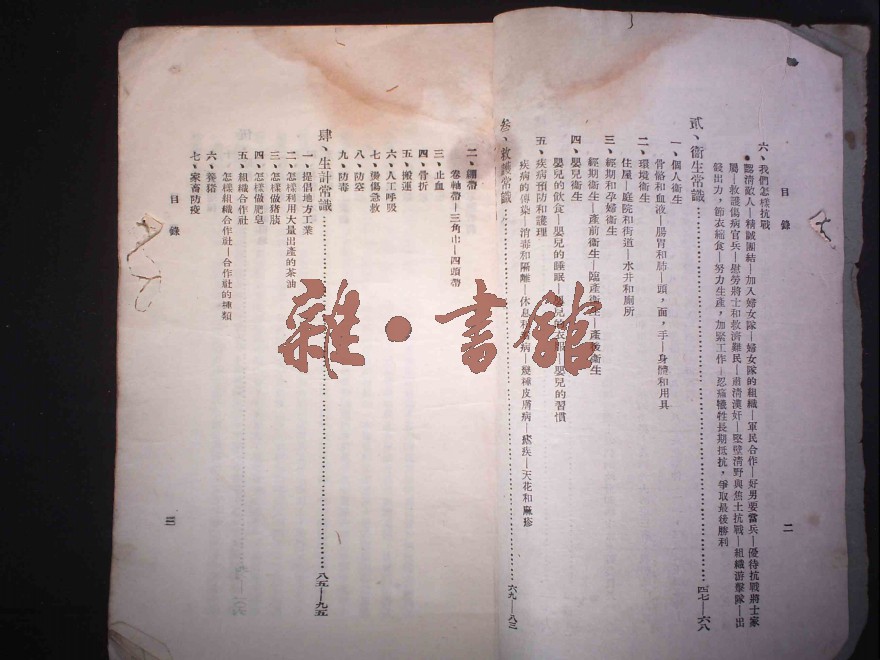 目錄
二
六、我們怎樣抗戰
認清敵人—精誠團結—加入婦女隊—婦女隊的組織—軍民合作—好男要當兵—優待抗戰將士家
屬—救護傷病官兵—慰勞將士和救濟難民—肅清漢奸—堅壁清野與焦土抗戰—組織游擊隊—出
錢出力，節衣縮食—努力生產，加緊工作—忍痛犧牲長期抵抗，爭取最後勝利
貳、衛生常識……四七—六八
一、個人衛生
骨骼和血液—腸胃和肺—頭，面，手—身體和用具
二、環境衛生
住屋—庭院和街道—水井和廁所
三、經期和孕婦衛生
經期衛生—產前衛生—臨產衛生—產後衛生
四、嬰兒衛生
嬰兒的飲食—嬰兒的睡眠—嬰兒的衣服—嬰兒的習慣
五、疾病預防和護理
疾病的傳染—消毒和隔離—休息和 病—幾種皮膚病—瘧疾—天花和麻疹
叁、救護常識……六九—八三
二、繃帶
卷軸帶—三角巾—四頭帶
三、止血
四、骨折
五、搬運
六、人工呼吸
七、燙傷急救
八、防疫
九、防毒
肆、生計常識……八五—九五
一、提倡地方工業
二、怎樣利用大量出產的茶油
三、怎樣做豬胰
四、怎樣做肥皂
五、組織合作社
怎樣組織合作社—合作社的種類
六、養豬
七、家畜防疫
目錄
三
雜·書館